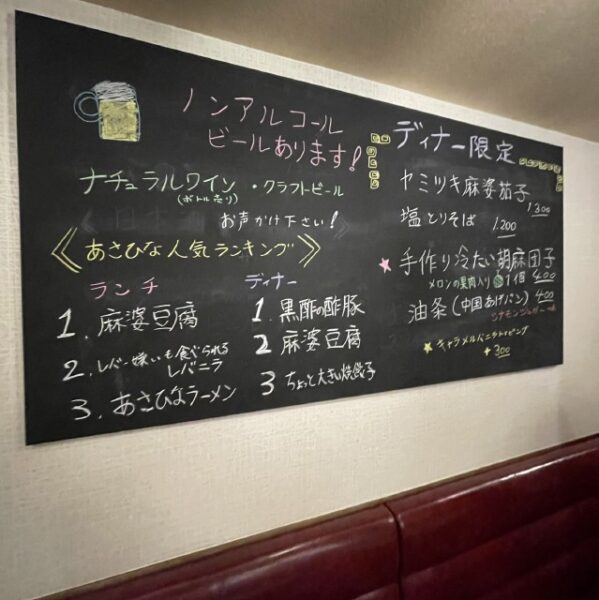 ノンアルコール
ビールあります!
ナチュラルワイン ・クラフトビール
(ボトル売り)
お声がけ下さい!
《あさひな人気ランキング》
ランチ
1. 麻婆豆腐
2. レバー嫌いも食べられる
レバニラ
3. あさひなラーメン
ディナー
1. 黒酢の酢豚
2 麻婆豆腐
3 ちょっと大きい焼餃子
ディナー限定
ヤミツキ麻婆茄子
1.300
塩とりそば 1.200
★手作り冷たい胡麻団子
メロンの果肉入り 1個 400
油条(中国あげパン) 400
シナモンシュガー
★キャラメルバニラトッピング
+300